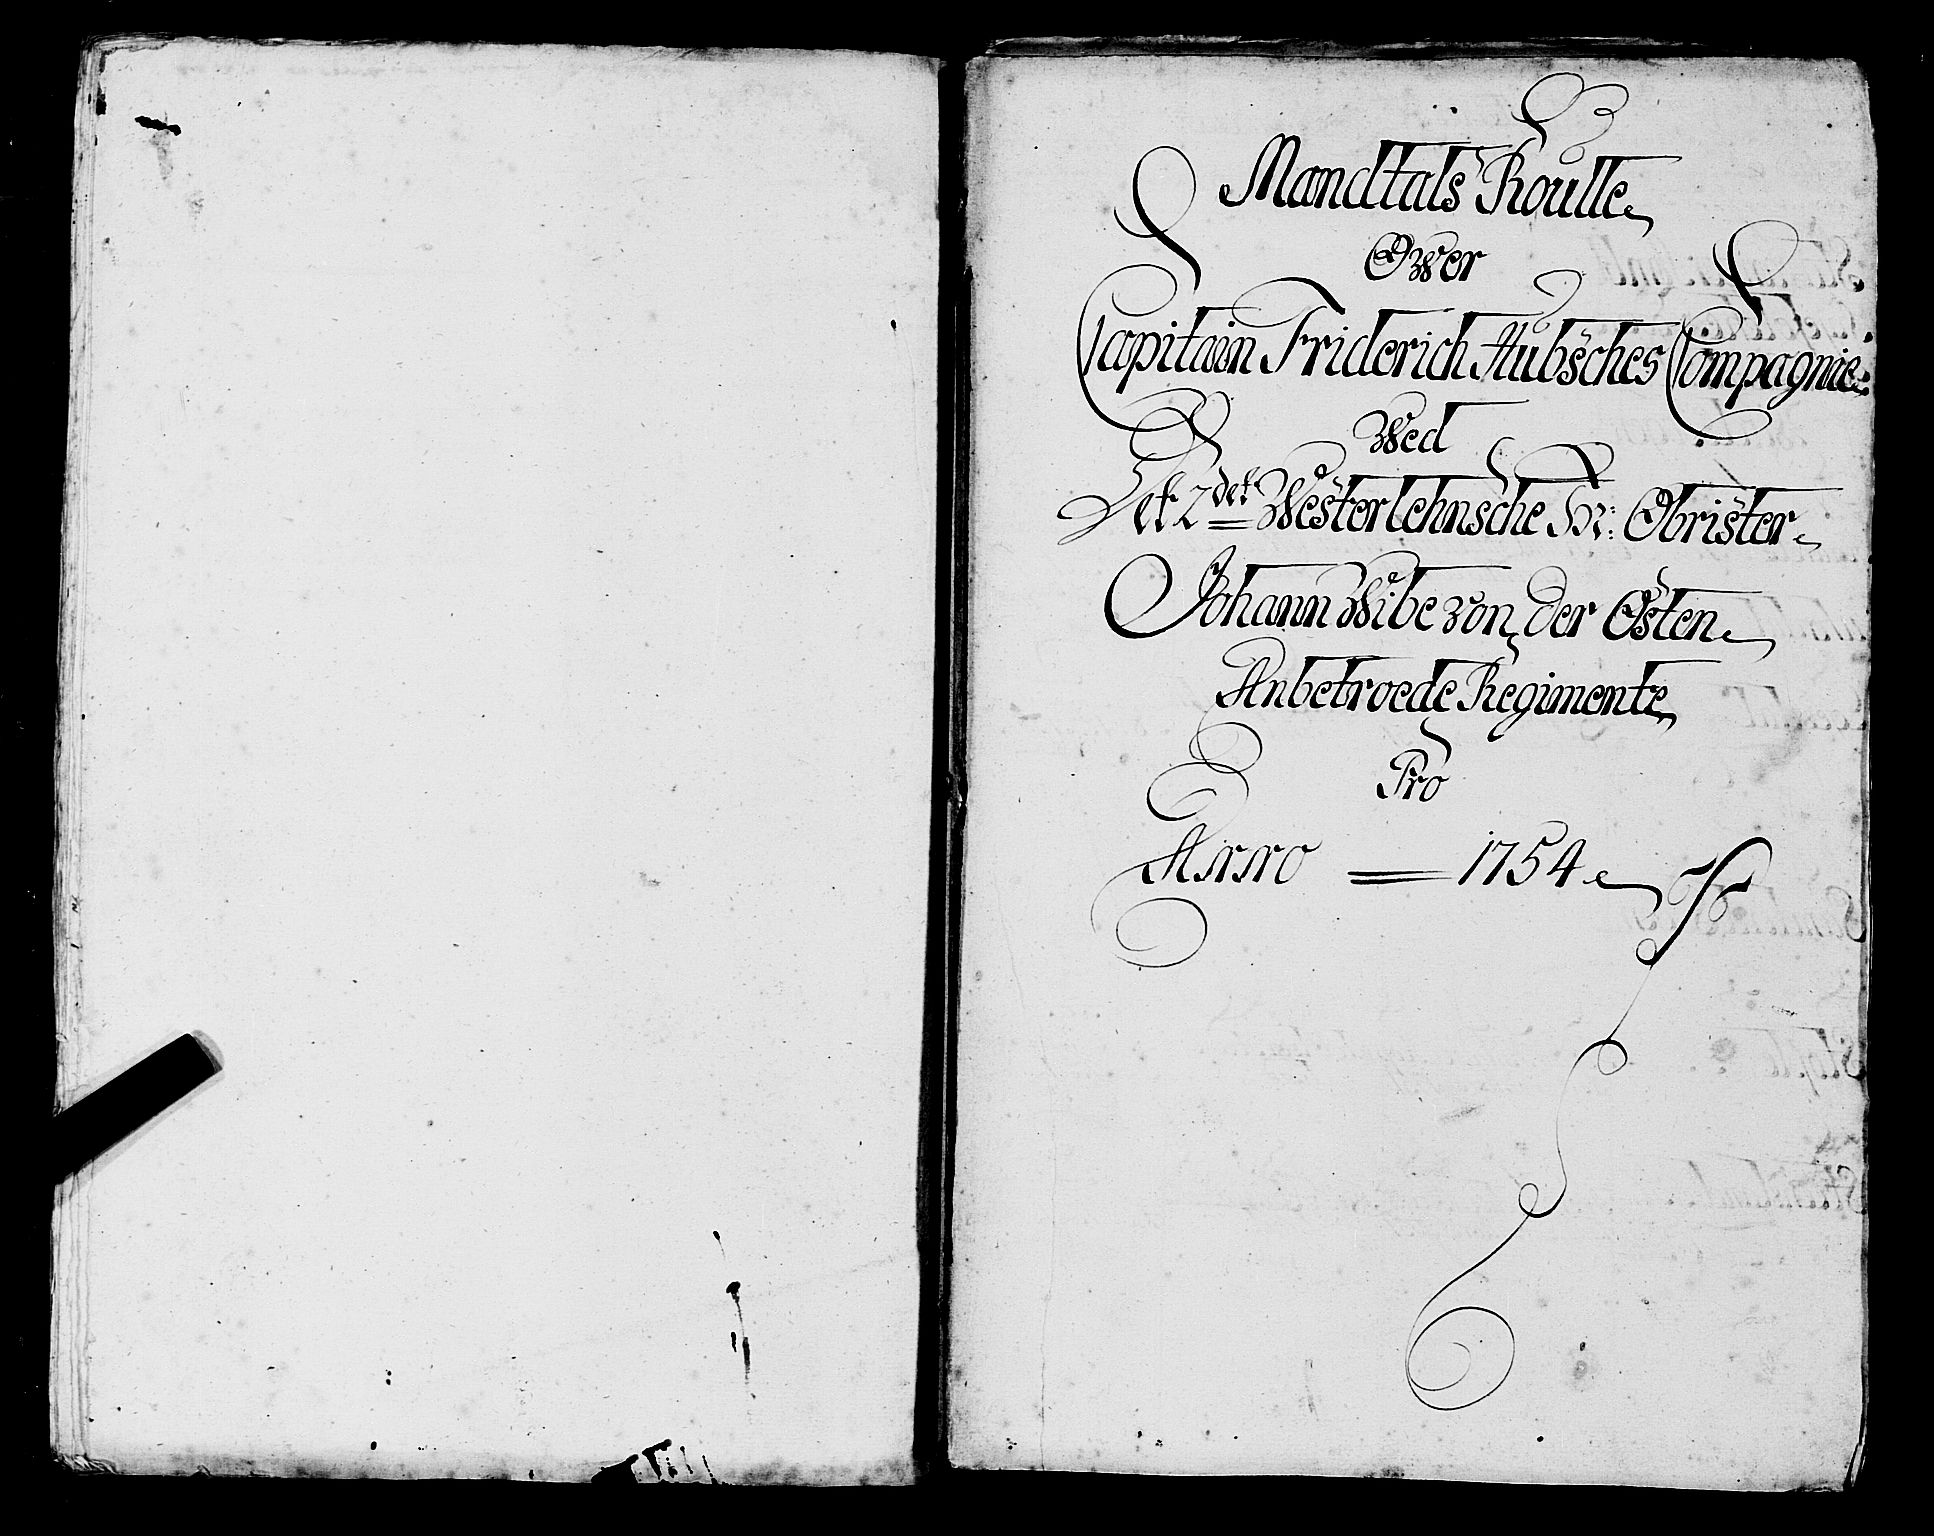 Mandtals Roulle
Over
Capitain Friderich Hubsches Compagnie
Wed
Det 2det Westerlehnsche Hr: Obrister
Johann Wibe von der Osten
Anbetroede Regimente
Pro
Anno 1754